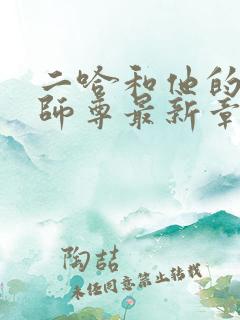 二哈和他的
師尊最新章
陶喆
未经同意禁止转载